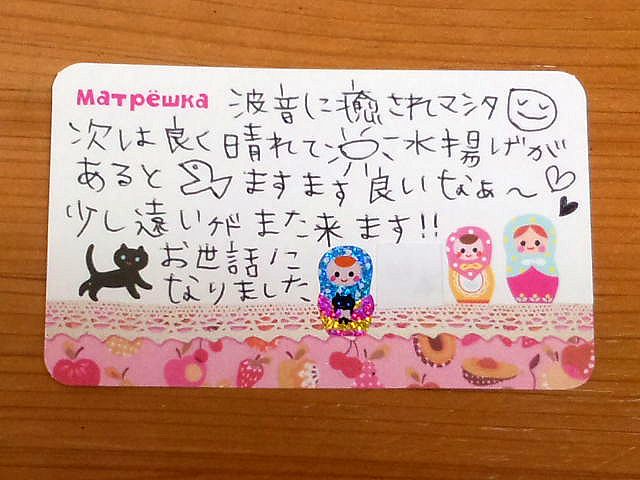 Матрёшка 波音に癒されてマシタ
次は良く晴れて 水揚げが
あると ますます良いなぁ〜
少し遠いケドまた来ます!!
お世話に
なりました